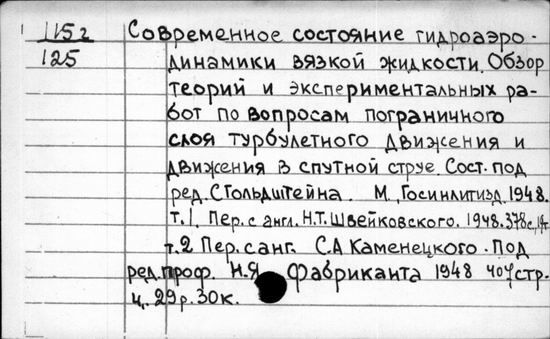 115г Современное состояние гидроаэро-
125 динамики вязкой жидкости. Обзор
теорий и экспериментальных ра-
бот по вопросам пограничного
слоя турбулетного движения и
движения в спутной струе. Сост. под
ред. С Гольдштейна. М., Госинлитизд, 1948.
т. 1. Пер. с англ. Н.Т. Швейковского. 1948. 378с.
т. 2 Пер. с анг. С.А Каменецкого. Под
ред. проф. Н.Я Фабриканта 1948 407 стр.
ц. 29р. 30к.